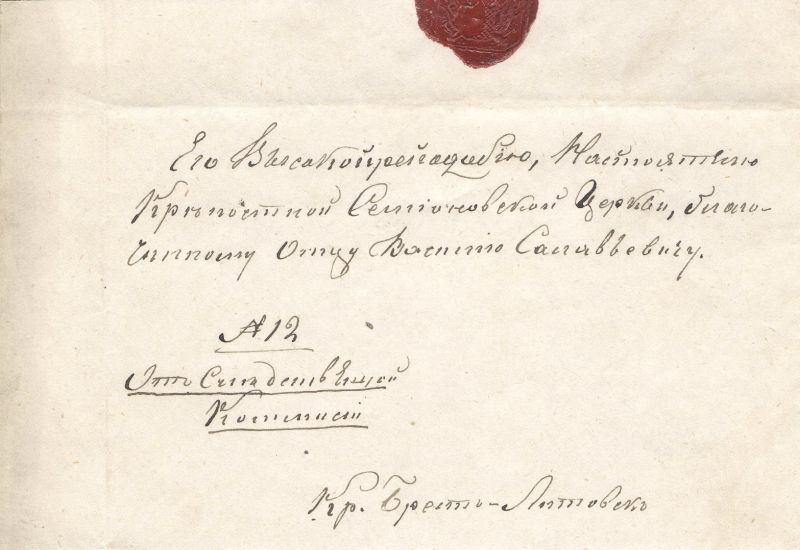 Его Высокопреподобію, Настоятелю
Крѣпостной Семіоновской Церкви, благо-
чинному Отцу Василію Саловьевичу.
№ 12
Отъ Слѣдственной
Коммисіи
Кр. Брестъ-Литовскъ